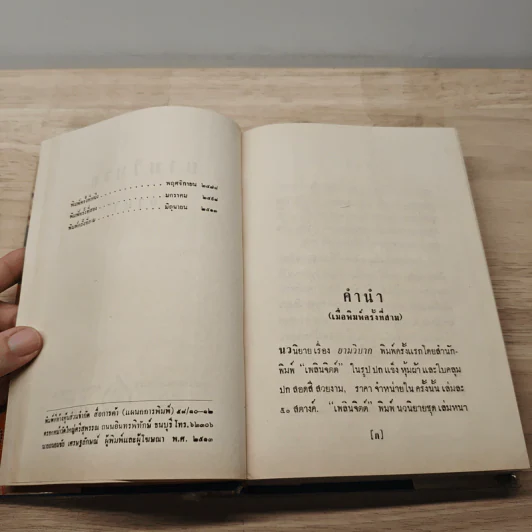 พิมพ์ครั้งที่หนึ่ง . . . . . . . . . . พฤศจิกายน ๒๔๘๔
พิมพ์ครั้งที่สอง . . . . . . . . . . มกราคม
พิมพ์ครั้งที่สาม . . . . . . . . . . มิถุนายน ๒๕๑๓
พิมพ์ที่ห้างหุ้นส่วนจำกัด สื่อการค้า (แผนกการพิมพ์) ๕๘/๑๐-๑๒
ถนนอินทรพิทักษ์ ธนบุรี โทร. ๖๒๓๐๖
ผู้พิมพ์และผู้โฆษณา พ.ศ. ๒๕๑๓
คำนำ
(เมื่อพิมพ์ครั้งที่สาม)
นวนิยายเรื่อง ยามวิบาก พิมพ์ครั้งแรกโดยสำนัก-
พิมพ์ "เพลินจิตต์" ในรูป ปก แข็ง หุ้มผ้า และใบคลุม
ปก สอดสี สวยงาม, ราคา จำหน่ายใน ครั้งนั้น เล่มละ
๕๐ สตางค์. "เพลินจิตต์" พิมพ์ นวนิยายชุด เล่มหนา
[ก]